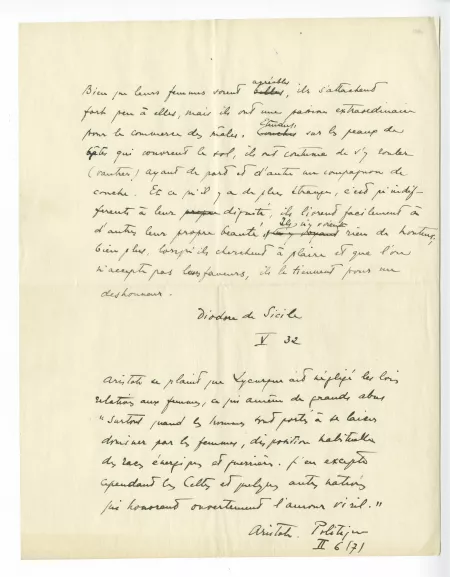 agréables
Bien que leurs femmes soient belles, ils s'attachent
fort peu à elles, mais ils ont une passion extraordinaire
pour le commerce des mâles. Couchés sur les peaux de
bêtes qui couvrent le sol, ils ont coutume de s'y rouler
(vautrer) ayant de part et d'autre un compagnon de
couche. Et ce qu'il y a de plus étrange, c'est qu'indif-
férents à leur propre dignité, ils livrent facilement à
d'autres leur propre beauté, Ils n'y voient rien de honteux,
bien plus, lorsqu'ils cherchent à plaire et que l'on
n'accepte pas leurs faveurs, ils le tiennent pour un
deshonneur.
Diodore de Sicile
V 32
Aristote se plaint que Lycurgue ait négligé les lois
relatives aux femmes, ce qui amène de grands abus
"Surtout quand les hommes sont portés à se laisser
dominer par les femmes, disposition habituelle
des races énergiques et guerrières. J'en excepte
cependant les Celtes et quelques autres nations
qui honorent ouvertement l'amour viril."
Aristote. Politique
II 6 (7)